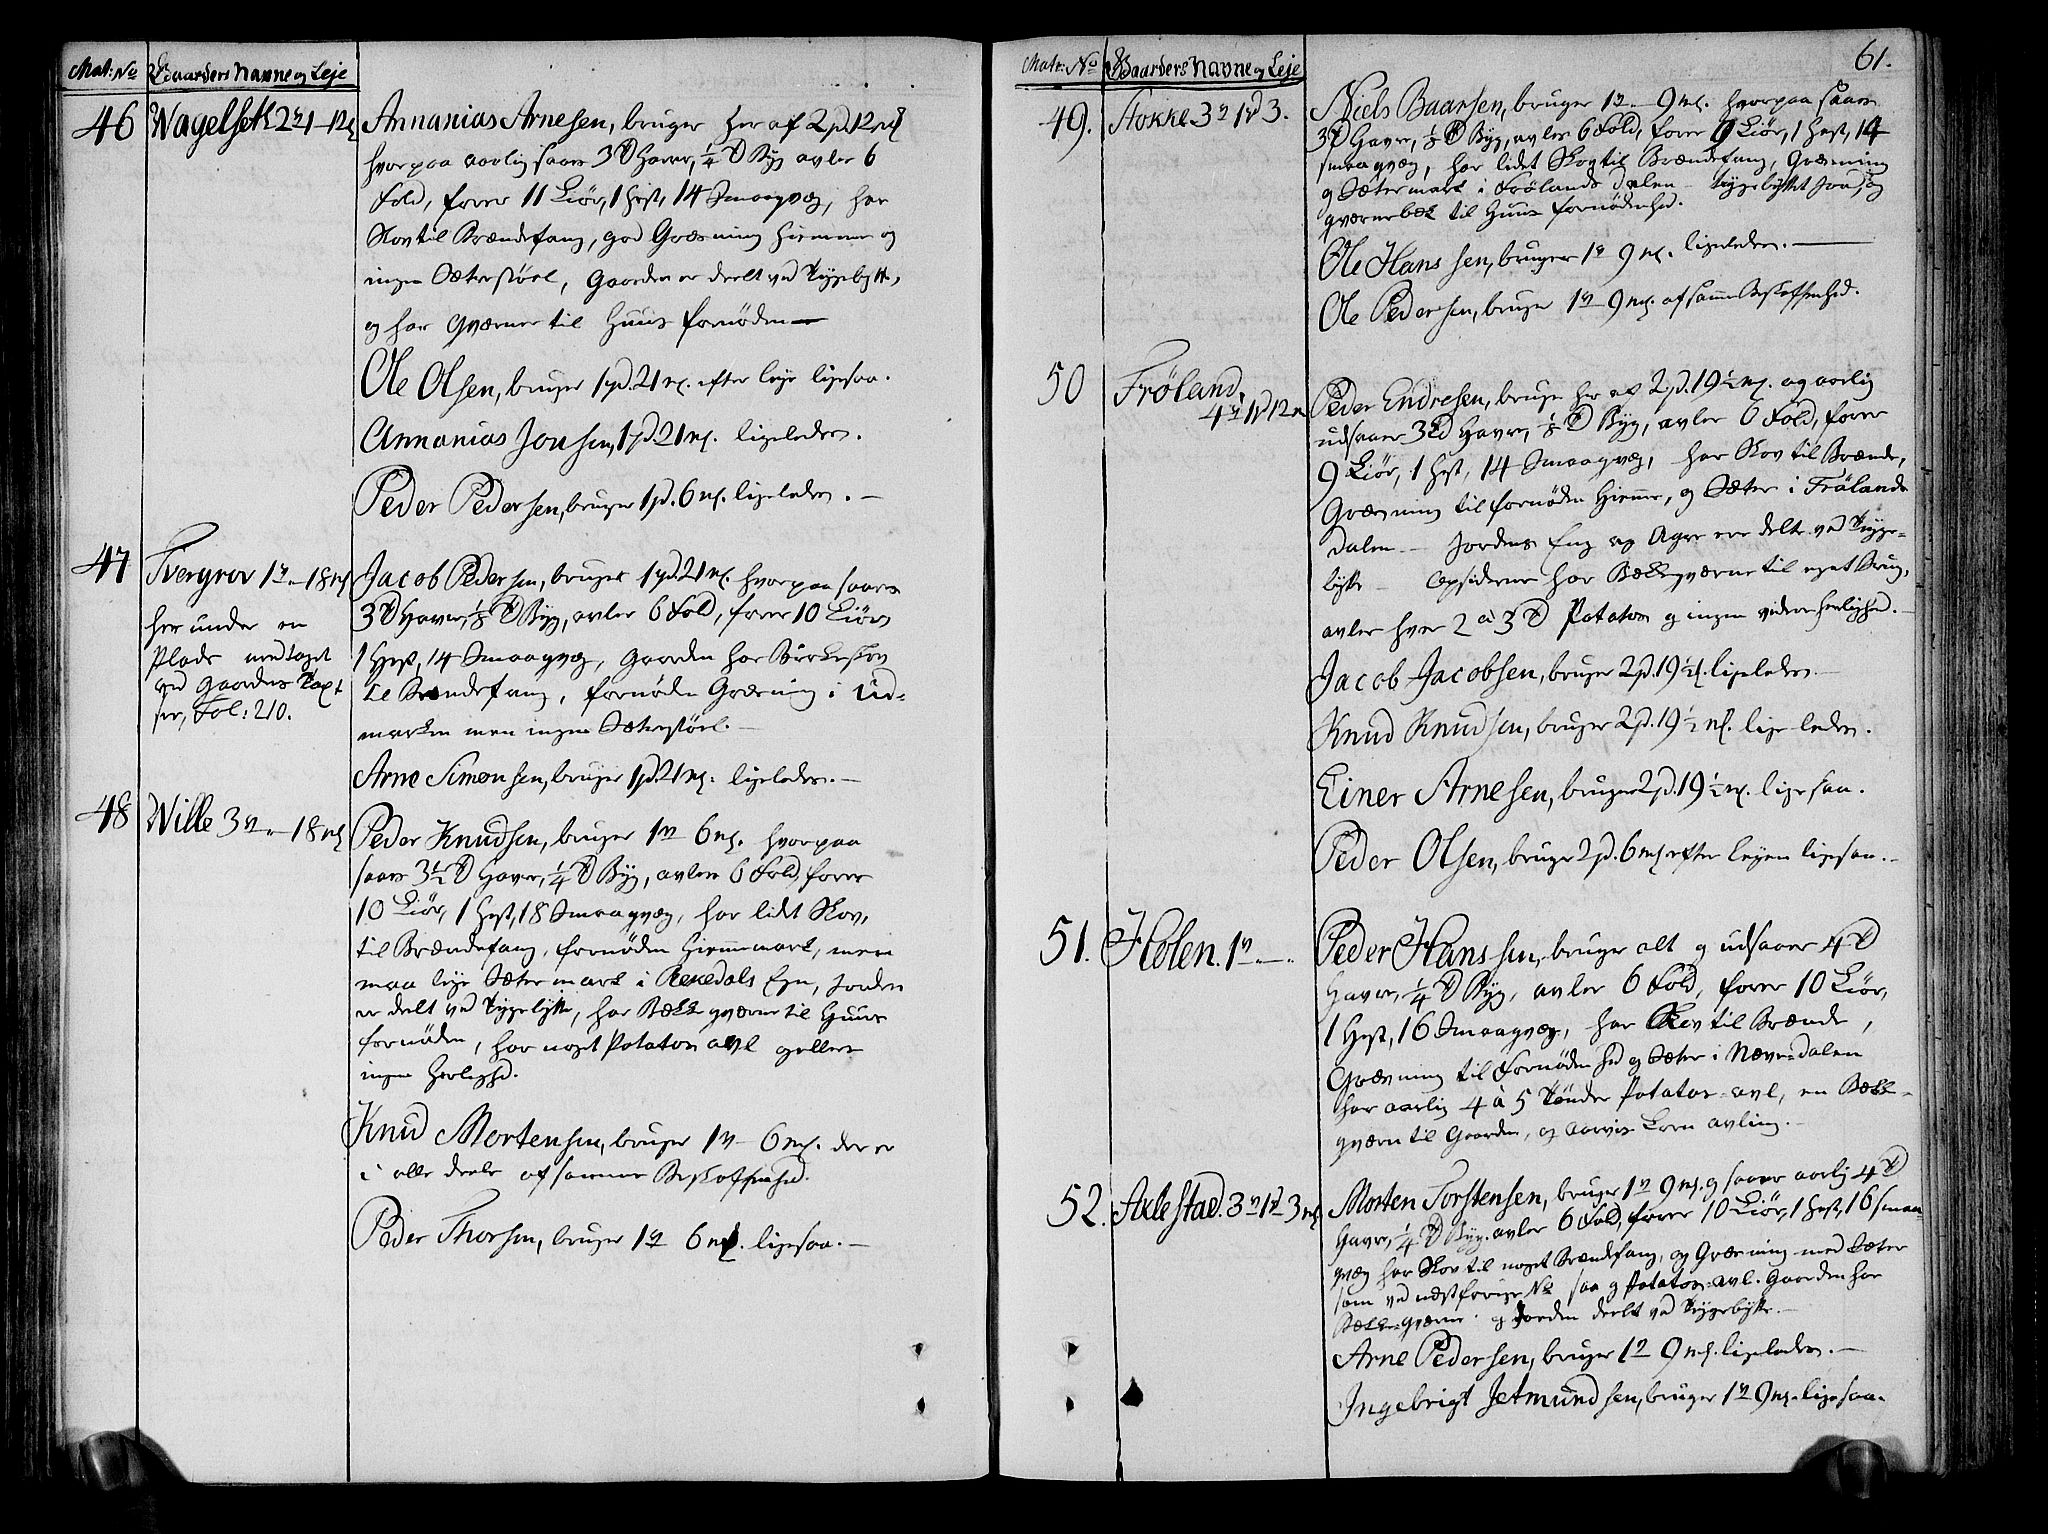 Matr: No Gaarders Navne og Leje
46 Wagelseth 2 v 1 - 12 mk
Annanias Arnesen, bruger her af 2 pd 12 mk
hvorpaa aarlig saaes 3 Td Havre, 1/4 Td Byg avler 6
Fold, foder 11 Kiør, 1 Hest, 14 Smaaqvæg, har
Skov til Brændefang, god Græsning hiemme og
ingen Sæterstøel, Gaarden er deelt ved Tegebytte,
og har Qværne til Huus fornøden
Ole Olsen, bruger 1 pd. 21 mk. efter leje ligesaa.
Annanias Jonsen, 1 pd. 21 mk. ligeledes.
Peder Pedersen, bruger 1 pd. 6 mk. ligeledes. -
47 Tvergrov 1 v. - 18 mk
her under en
Plads
ved Gaardens Taxt
Fol: 210.
Jacob Pedersen, bruger 1 pd. 21 mk. hvorpaa saaes
3 Td Havre, 1/8 Td Byg, avler 6 Fold, foder 10 Kiør
1 Hest, 14 Smaaqvæg, Gaarden har Birkeskov
til Brændefang, fornøden Græsning i Ud-
marken men ingen Sæterstøel. -
Arne Simonsen, bruger 1 pd. 21 mk. ligeledes. -
48 Wille 3 v. - 18 mk
Peder Knudsen, bruger 1 v 6 mk. hvorpaa
saaes 3 1/2 Td Havre, 1/4 Td Byg, avler 6 Fold, foder
10 Kiør, 1 Hest, 18 Smaaqvæg, har lidt Skov,
til Brændefang, fornøden Hiemmemark, men
maa leje Sætermark i Egn, Jorden
er delt ved Tegebytte, har Bække qværne til Huus
fornøden, har noget Potatos avl
ingen Herlighed.
Knud Mortensen, bruger 1 v - 6 mk. der er
i alle deele af samme Beskaffenhed.
Peder Thorsen, bruger 1 v 6 mk. ligesaa. -
61.
Matr: No Gaarders Navne og Leje
49. Stokke 3 v 1 pd 3.
Niels Baarsen, bruger 1 v. - 9 mk. hvorpaa saaes
3 Td Havre, 1/8 Td Byg, avler 6 Fold, foder 9 Kiør, 1 Hest, 14
smaaqvæg, har lidet Skov til Brændefang, Græsning
og Sætermark i Frølands dalen - Tegebyttet Jord og
qværnebæk til Huus fornødenhed.
Ole Hanssen, bruger 1 v 9 mk. ligeledes.
Ole Pedersen, bruger 1 v 9 mk. af samme Beskaffenhed.
50 Frøland,
4 v 1 pd 12 mk
Peder Endresen, bruger her af 2 pd. 19 1/2 mk. og aarlig
udsaaer 3 Td Havre, 1/8 Td Byg, avler 6 Fold, foder
9 Kiør, 1 Hest, 14 Smaaqvæg, har Skov til Brænde,
Græsning til fornøden Hiemme, og Sæter i Frølands
dalen - Jordens Eng og Ager ere delte ved Tege-
bytte - Opsidderne har Bækkeqværne til eget Brug,
avler hver 2 a 3 Td Potatos og ingen videre herlighed. -
Jacob Jacobsen, bruger 2 pd. 19 1/2 mk. ligeledes. -
Knud Knudsen, bruger 2 pd. 19 1/2 mk. lige ledes.
Einer Arnesen, bruger 2 pd. 19 1/2 mk. ligesaa.
Peder Olsen, bruger 2 pd. 6 mk efter lejen ligesaa. -
51. Holen. 1 v. -.
Peder Hanssen, bruger alt og udsaaer 4 Td
Havre, 1/4 Td Byg, avler 6 Fold, foder 10 Kiør,
1 Hest, 16 Smaaqvæg, har Skov til Brænde,
Græsning til Fornødenhed og Sæter i Næverdalen
har aarlig 4 à 5 Tønder Potatos-avl, en Bæk-
qværn til Gaarden, og aarvis Korn avling. -
52. Axlestad. 3 v 1 pd 3 mk
Morten Torstensen, bruger 1 v 9 mk. og saaer aarlig 4 Td
Havre, 1/4 Td Byg. avler 6 Fold, foder 10 Kiør, 1 Hest, 16 smaa-
qvæg har Skov til noget Brændefang, og Græsning med Sæter
som ved næstforrige No saa og Potatos-avl. Gaarden har
Bække-qværne og Jorden deelt ved Tegebytte. -
Arne Pedersen, bruger 1 v 9 mk. ligeledes. -
Ingebrigt Jetmundsen, bruger 1 v 9 mk. ligesaa.